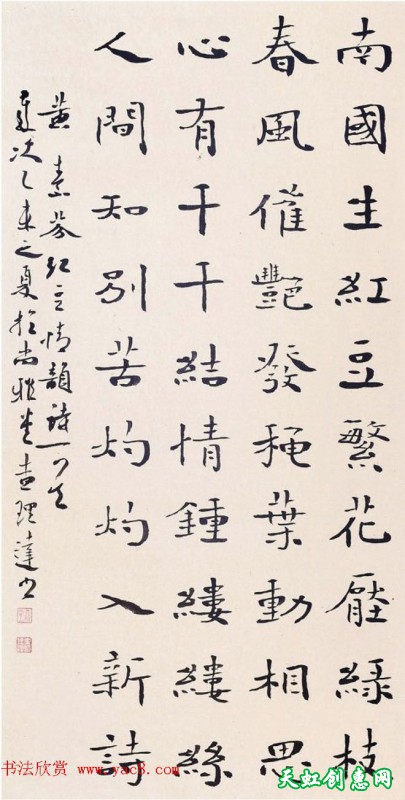 南國生紅豆繁花壓綠枝
春風催艷發穠葉動相思
心有千千結情鍾縷縷絲
人間知別苦灼灼入新詩
黃素芬紅豆情韻詩一首
歲次乙未之夏於尚雅堂查理達書
书法欣赏 www.yac8.com
天虹创惠网